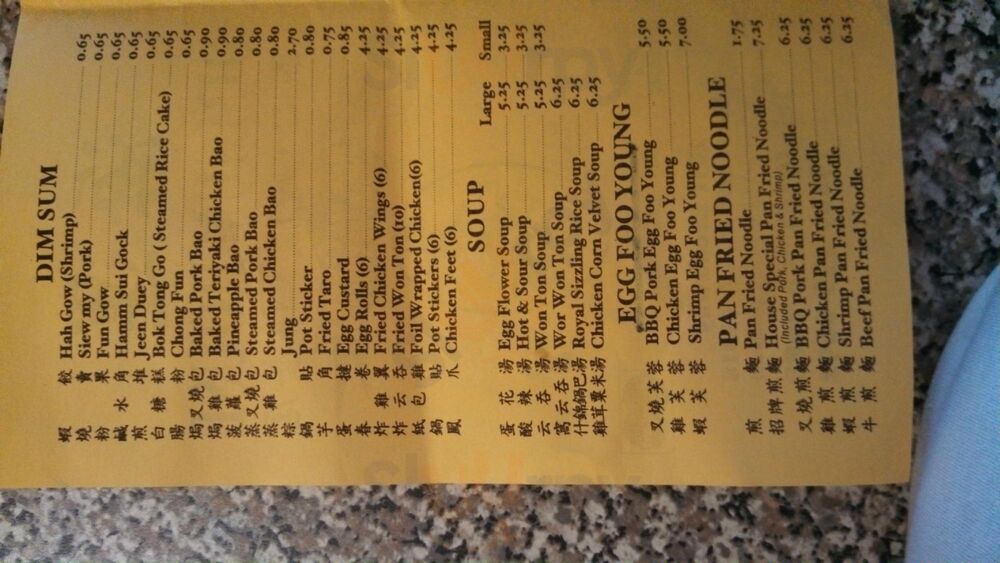 DIM SUM
蝦餃 Hah Gow (Shrimp) 0.65
燒賣 Siew my (Pork) 0.65
粉果 Fun Gow 0.65
鹹水角 Hamm Sui Gock 0.65
煎堆 Jeen Duey 0.65
白糖糕 Bok Tong Go ( Steamed Rice Cake) 0.65
腸粉 Chong Fun 0.65
焗叉燒包 Baked Pork Bao 0.90
焗雞包 Baked Teriyaki Chicken Bao 0.90
菠蘿包 Pineapple Bao 0.80
蒸叉燒包 Steamed Pork Bao 0.80
蒸雞包 Steamed Chicken Bao 0.80
粽 Jung 2.70
鍋貼 Pot Sticker 0.80
芋角 Fried Taro 0.75
蛋撻 Egg Custard 0.85
春卷 Egg Rolls (6) 4.25
炸雞翼 Fried Chicken Wings (6) 4.25
炸云吞 Fried Won Ton (10) 4.25
紙包雞 Foil Wrapped Chicken(6) 4.25
鍋貼 Pot Stickers (6) 4.25
鳳爪 Chicken Feet (6) 4.25
SOUP Large Small
蛋花湯 Egg Flower Soup 5.25 3.25
酸辣湯 Hot & Sour Soup 5.25 3.25
云吞湯 Won Ton Soup 5.25 3.25
窩云吞湯 Wor Won Ton Soup 6.25
什錦鍋巴湯 Royal Sizzling Rice Soup 6.25
雞茸粟米湯 Chicken Corn Velvet Soup 6.25
EGG FOO YOUNG
叉燒芙蓉 BBQ Pork Egg Foo Young 5.50
雞芙蓉 Chicken Egg Foo Young 5.50
蝦芙蓉 Shrimp Egg Foo Young 7.00
PAN FRIED NOODLE
煎麵 Pan Fried Noodle 1.75
招牌煎麵 House Special Pan Fried Noodle 7.25
(Included Pork, Chicken & Shrimp)
叉燒煎麵 BBQ Pork Pan Fried Noodle 6.25
雞煎麵 Chicken Pan Fried Noodle 6.25
蝦煎麵 Shrimp Pan Fried Noodle 6.25
牛煎麵 Beef Pan Fried Noodle 6.25